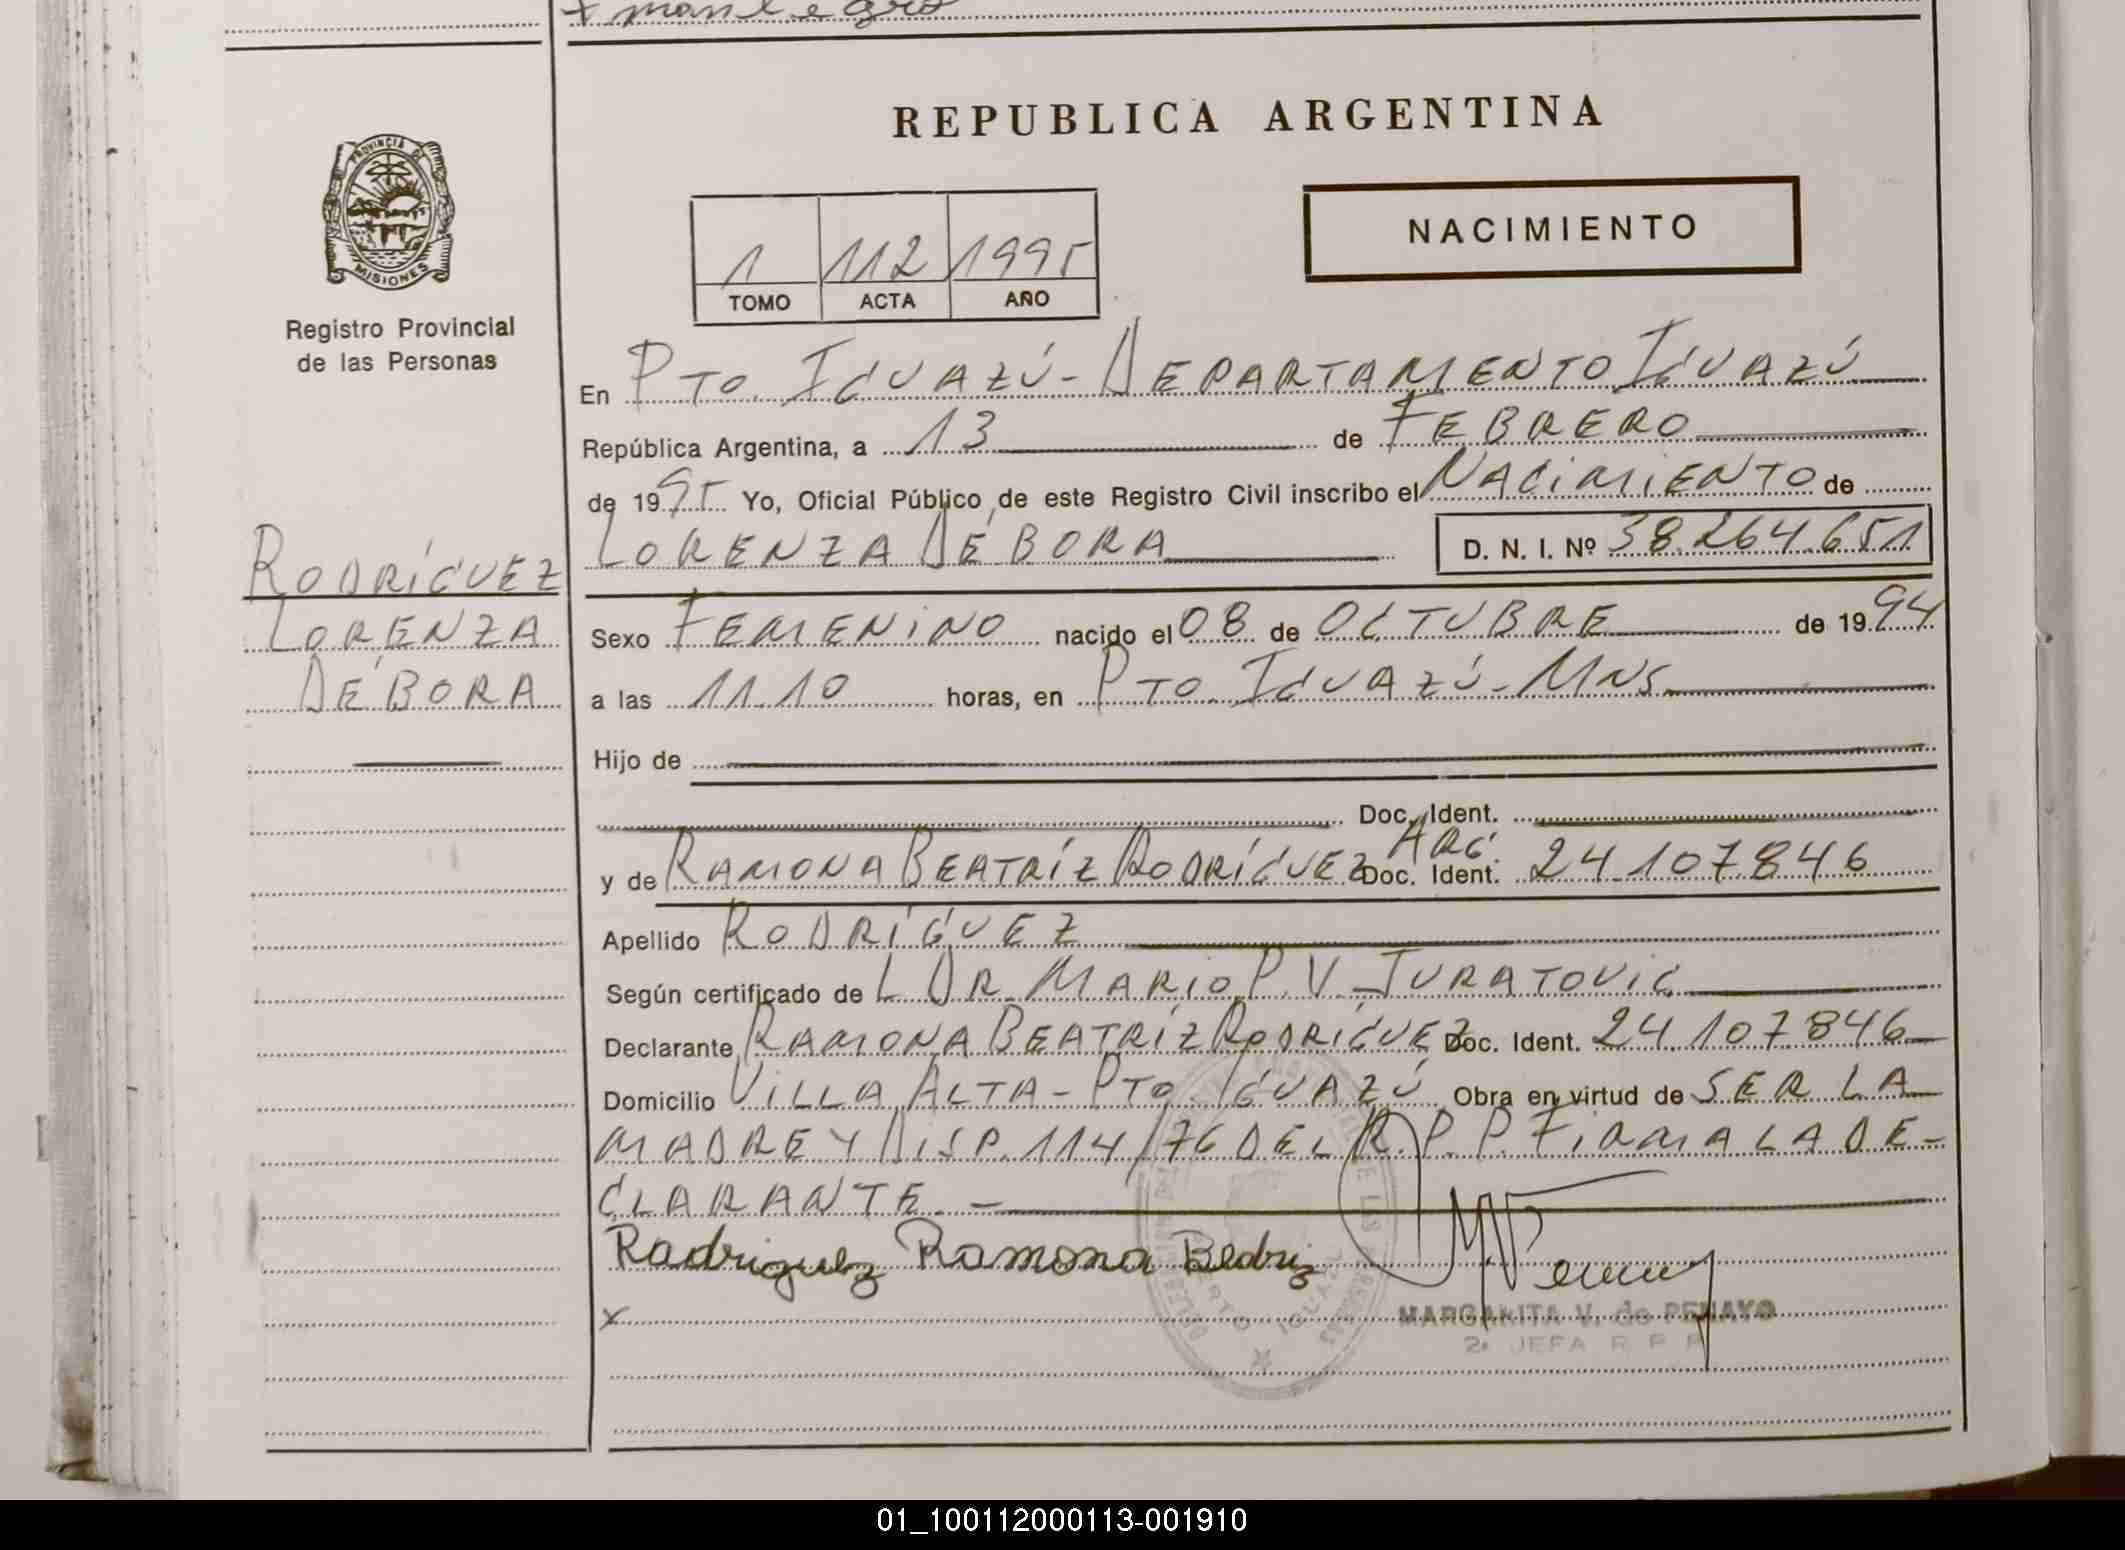 x man
REPUBLICA ARGENTINA
PROVINCIA DE
MISIONES
Registro Provincial
de las Personas
1 112 1995
TOMO ACTA AÑO
NACIMIENTO
En Pto. Iguazú - Departamento Iguazú
República Argentina, a 13 de Febrero
de 1995 Yo, Oficial Público de este Registro Civil inscribo el Nacimiento de
Lorenza Débora D. N. I. Nº 38.264.651
Rodríguez
Lorenza
Débora
Sexo Femenino nacido el 08 de Octubre de 1994
a las 11.10 horas, en Pto. Iguazú - Mns
Hijo de
Doc. Ident.
y de Ramona Beatríz Rodríguez Arg. Doc. Ident. 24.107.846
Apellido Rodríguez
Según certificado de L Dr. Mario P. V. Juratovic
Declarante Ramona Beatríz Rodríguez Doc. Ident. 24.107.846
Domicilio Villa Alta - Pto. Iguazú Obra en virtud de ser la
madre y Disp. 114/76 del R.P.P. Firma la de-
clarante. -
Rodriguez Ramona Bedriz
x
MARGARITA V. de PENAYO
2ª JEFA R P P
01_100112000113-001910